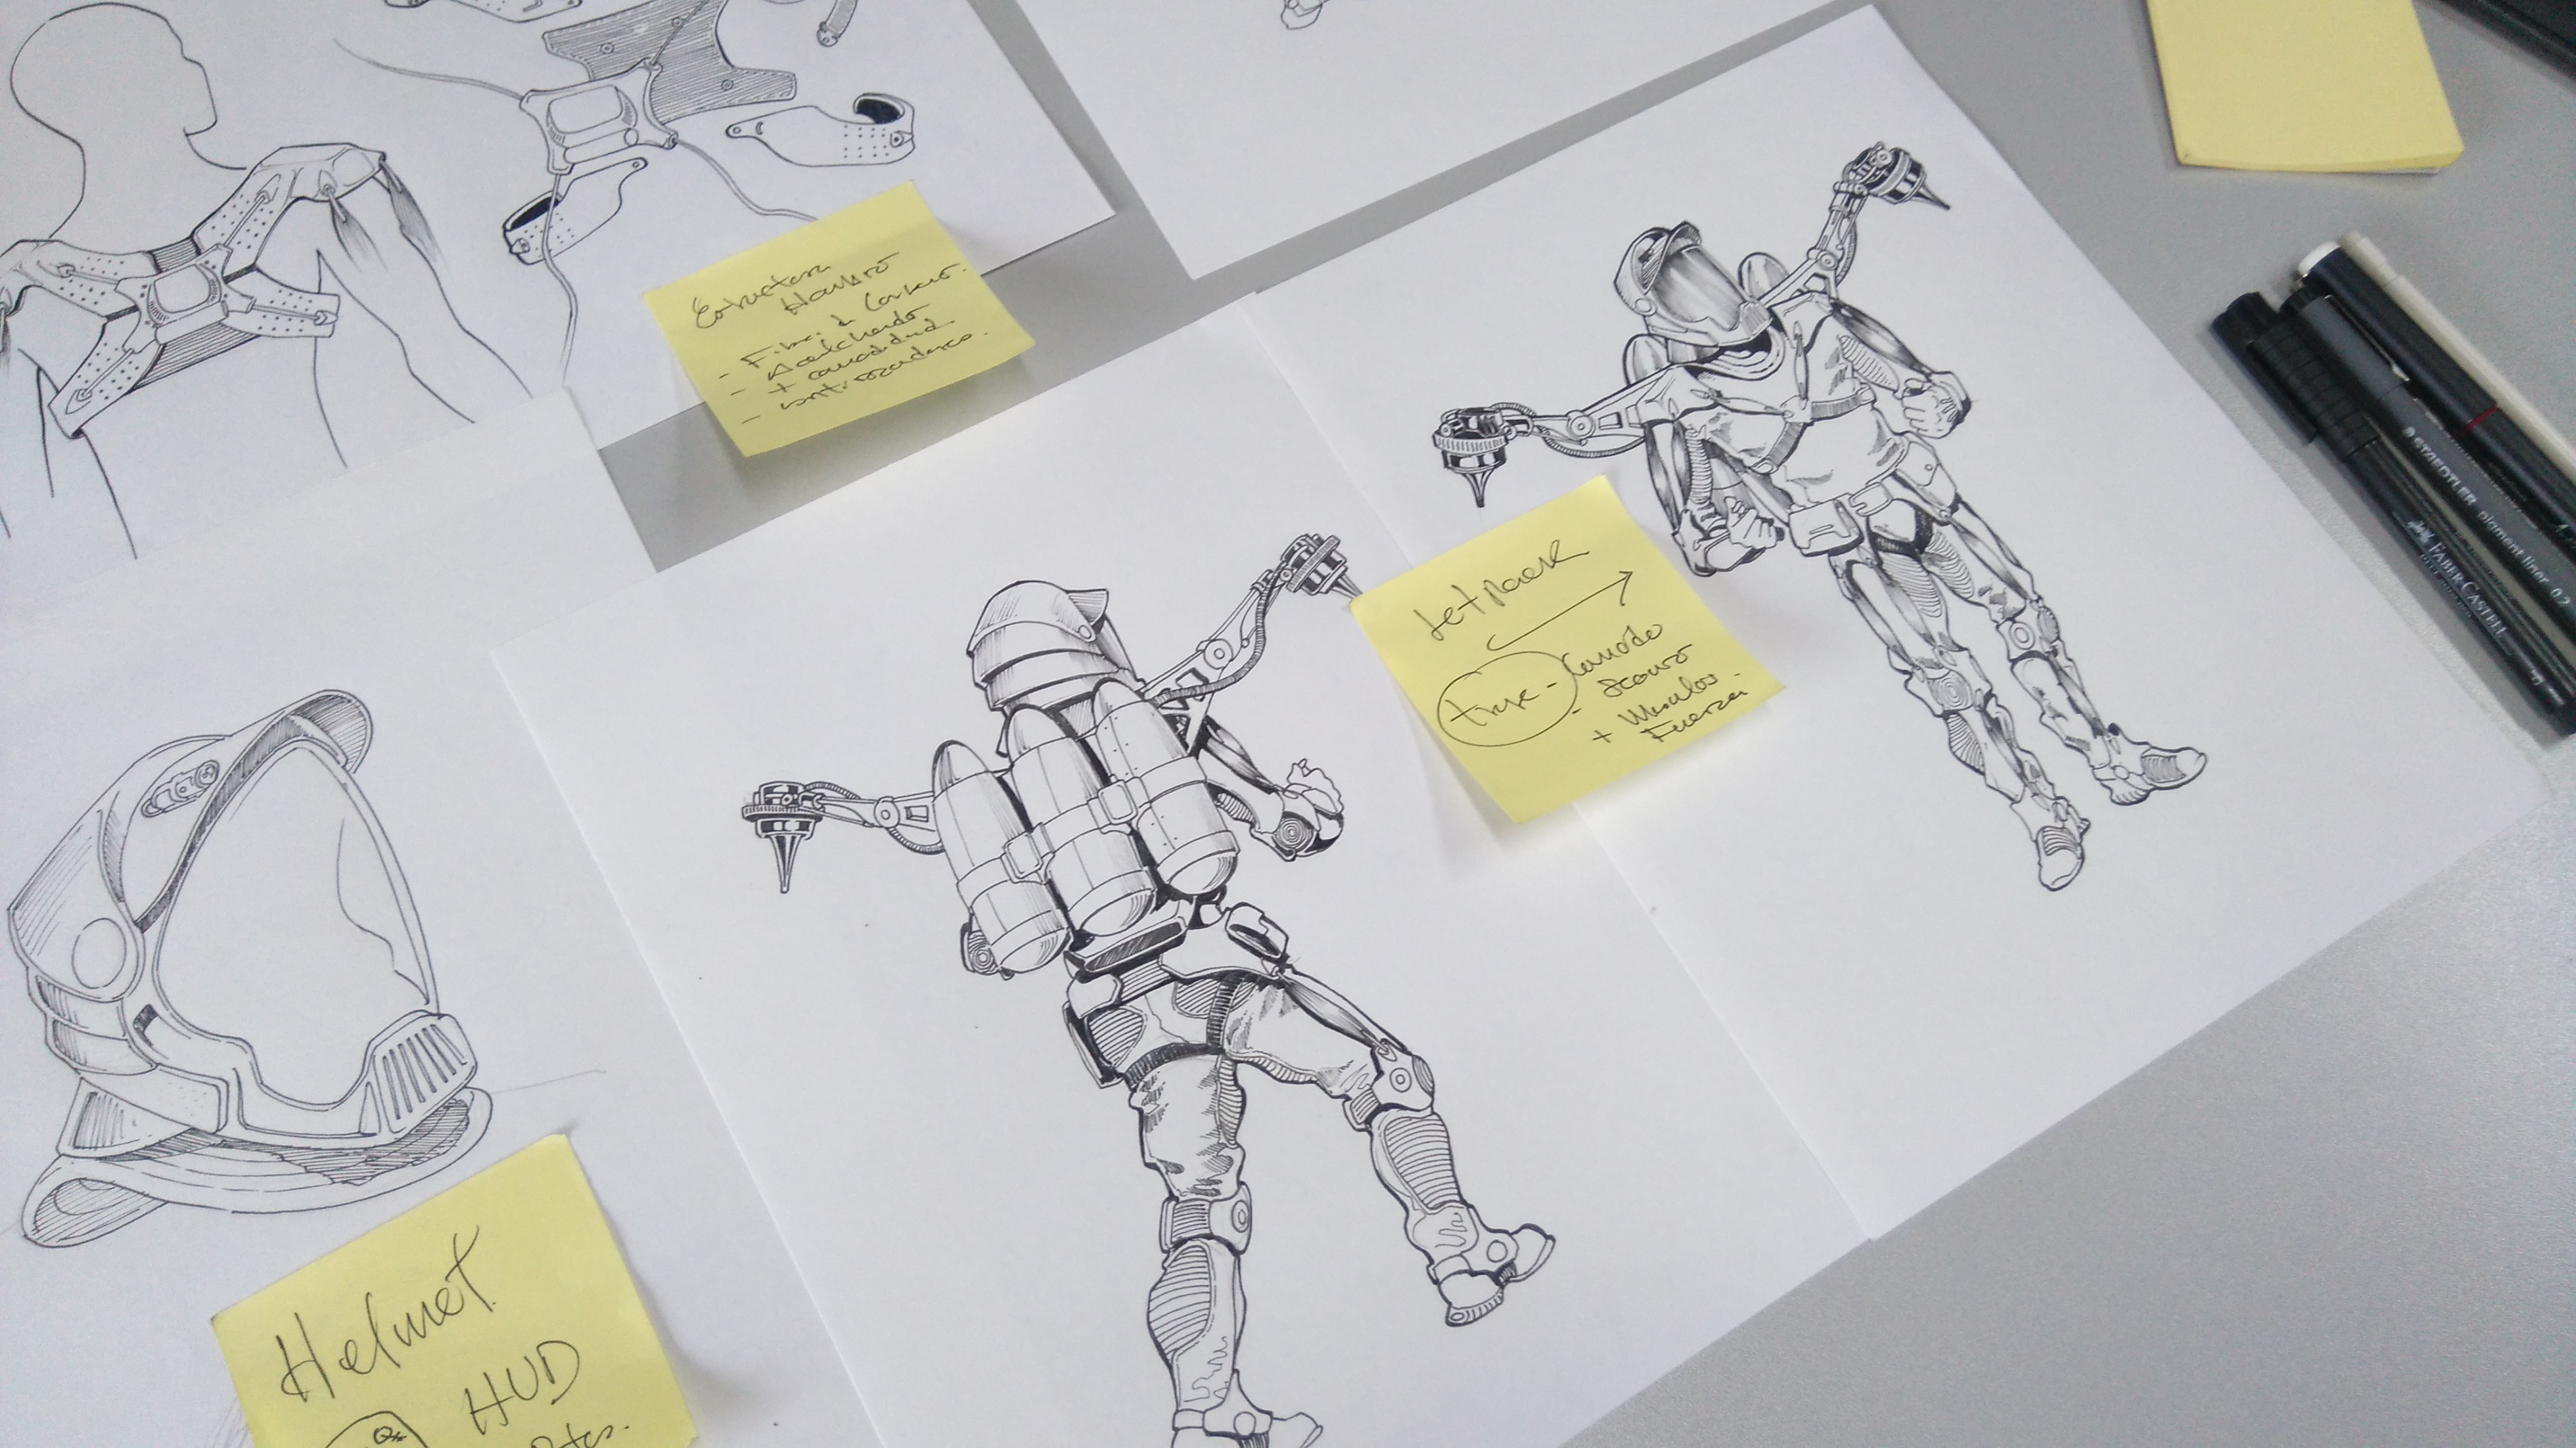 Estructura
Hombro
- Fibra d Carbono.
- Acolchado
- + comodidad
-
Jetpack
Traje - Comodo
- Steaua
+ Musculos
Fuerza
Helmet
HUD
STAEDTLER pigment liner 0.2
FABER CASTELL